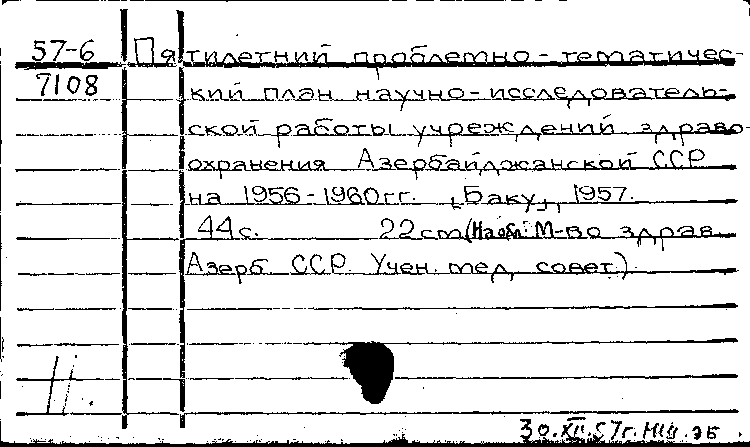 57-6 Пятилетний проблемно-тематичес-
7108 кий план научно-исследователь-
ской работы учреждений здраво-
охранения Азербайджанской ССР
на 1956-1960гг. [Баку], 1957.
44с. 22см (На обл: М-во здрав.
Азерб. ССР. Учен. мед. совет).
30.XII.57г.